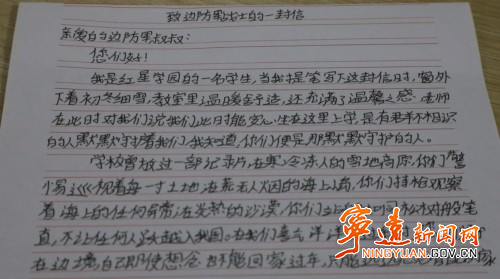 致边防战士的一封信
亲爱的边防叔叔：
您们好！
我是红星学园的一名学生，当我提笔写下这封信时，窗外
下着初冬细雪，教室里温暖舒适，还充满了温馨之感。老师
在此时对我们说我们此时能安心坐在这里上学，是有君羊不相识
的人默默守护着我们，我知道，你们便是那默默守护的人。
学校曾放过一部记录片，在寒冷冻人的雪地高原，你们
巡视着每一寸土地，在荒无人烟的海上，你们持枪观察
着海上的任何异常，在炎热的沙漠，你们
直，不让任何人踏进我国。在我们喜气洋洋
在边境，即使想念却不能回家过年，只能
宁远新闻网
www.nyxw